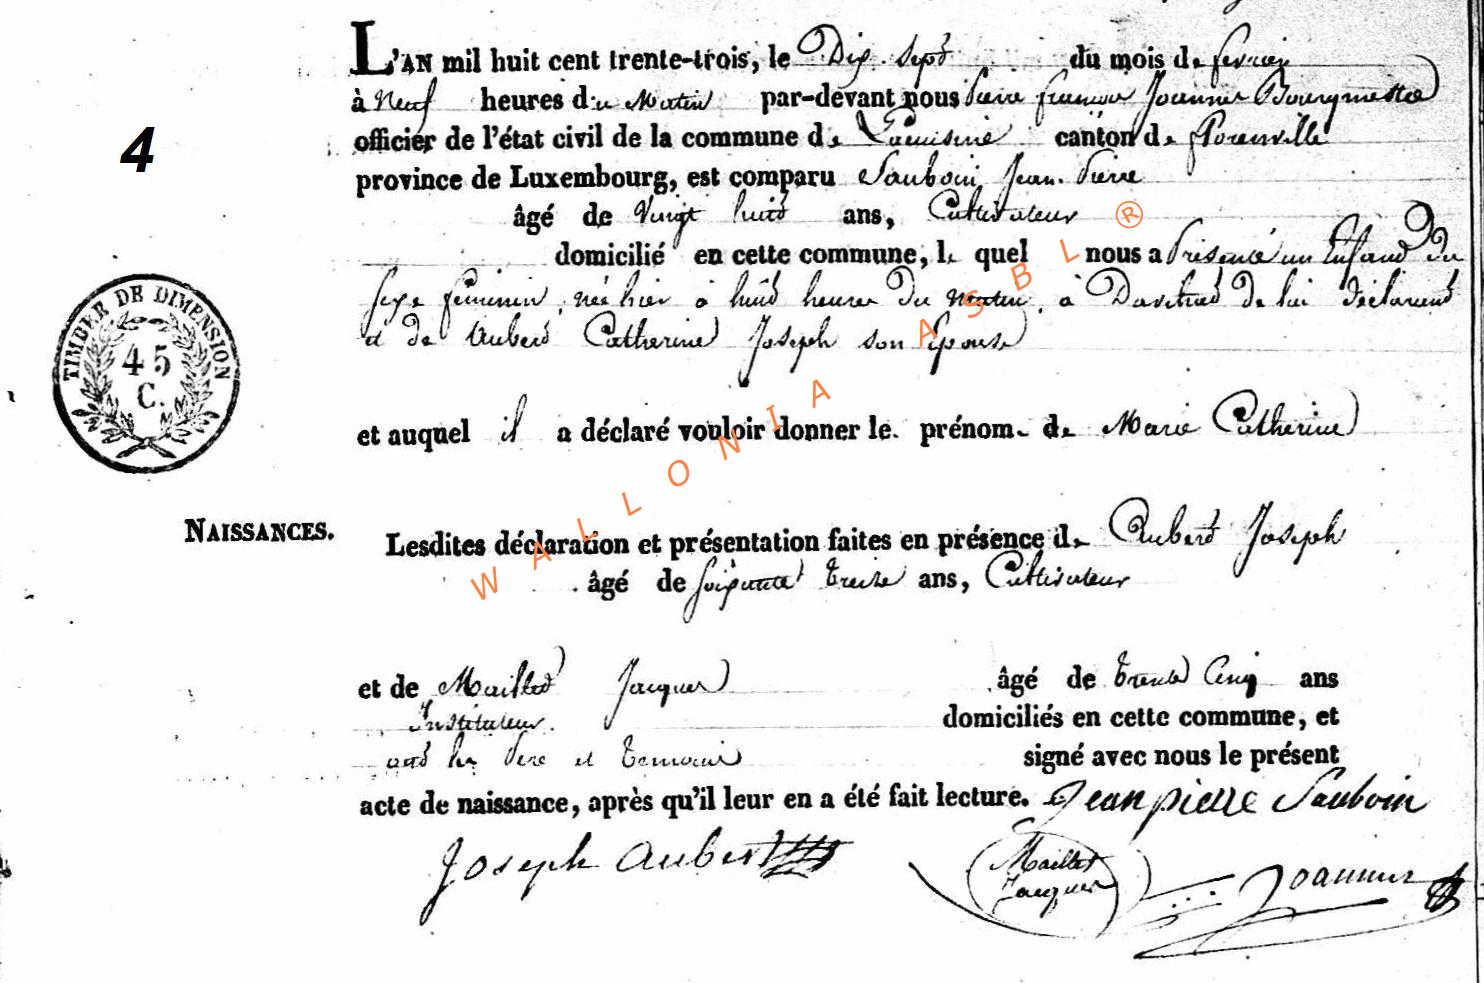 4
L'AN mil huit cent trente-trois, le Dix sept du mois de fevrier
à Neuf heures du Matin par-devant nous Pierre françois Joannes Bourgmestre
officier de l'état civil de la commune de Lacuisine canton de florenville
province de Luxembourg, est comparu Sauboin Jean Pierre
âgé de Vingt huit ans, Cultivateur
domicilié en cette commune, le quel nous a Présenté un Enfant du
sexe féminin, née hier à huit heures du matin, à de lui déclarant
et de Aubert Catherine Joseph son Epouse
et auquel il a déclaré vouloir donner le prénom de Marie Catherine
NAISSANCES.
Lesdites déclaration et présentation faites en présence de Aubert Joseph
âgé de soixante treize ans, Cultivateur
et de Maillet Jacques âgé de trente Cinq ans
Instituteur domiciliés en cette commune, et
ont les Père et temoins signé avec nous le présent
acte de naissance, après qu'il leur en a été fait lecture. Jean pierre Sauboin
Joseph aubert
Maillet
Jacques
Joannes
TIMBRE DE DIMENSION
45
C.
WALLONIA ASBL ®